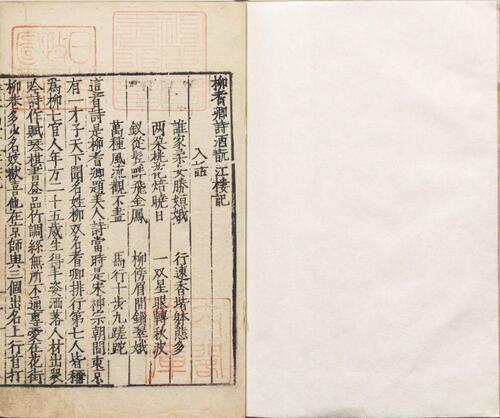 柳耆卿詩酒翫江樓記
入話
誰家柔女勝姮娥 行速香堦躰態多
两朶桃花焙曉日 一双星眼轉秋波
釵從鬓畔飛金鳳 柳傍眉間鎖翠娥
萬種風流觀不盡 馬行十步九蹉跎
這首詩是柳耆卿題美人詩當時是宋神宗朝間東京
有一才子天下聞名姓柳双名耆卿排行第七人皆稱
為柳七官人年方二十五歲生得丰姿洒落人材出衆
吟詩作賦琴棋書畫品竹調絲無所不通專愛在花街
柳巷多少名妓歡喜他在京師與三個出名上行首打